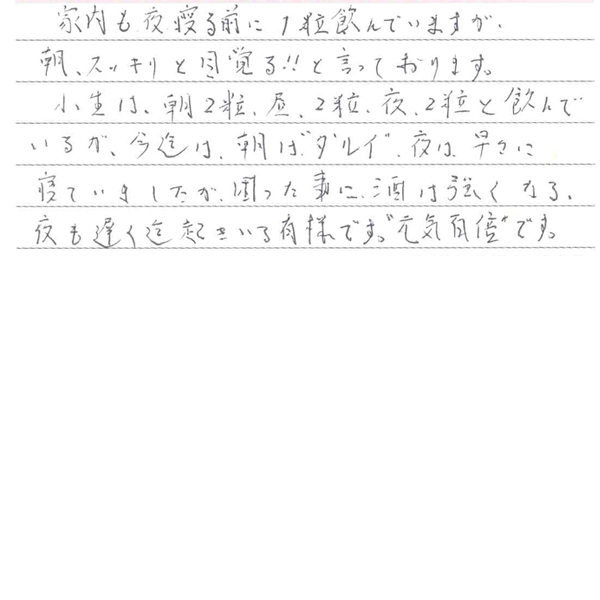 家内も夜寝る前に1粒飲んでいますが、
朝、スッキリと目覚る!!と言っております。
小生は、朝2粒、昼、2粒、夜、2粒と飲んで
いるが、今迄は、朝は"ダルイ"、夜は、早々に
寝ていましたが、困った事に、酒は強くなる、
夜も遅く迄起きいる有様です。"元気百倍"です。